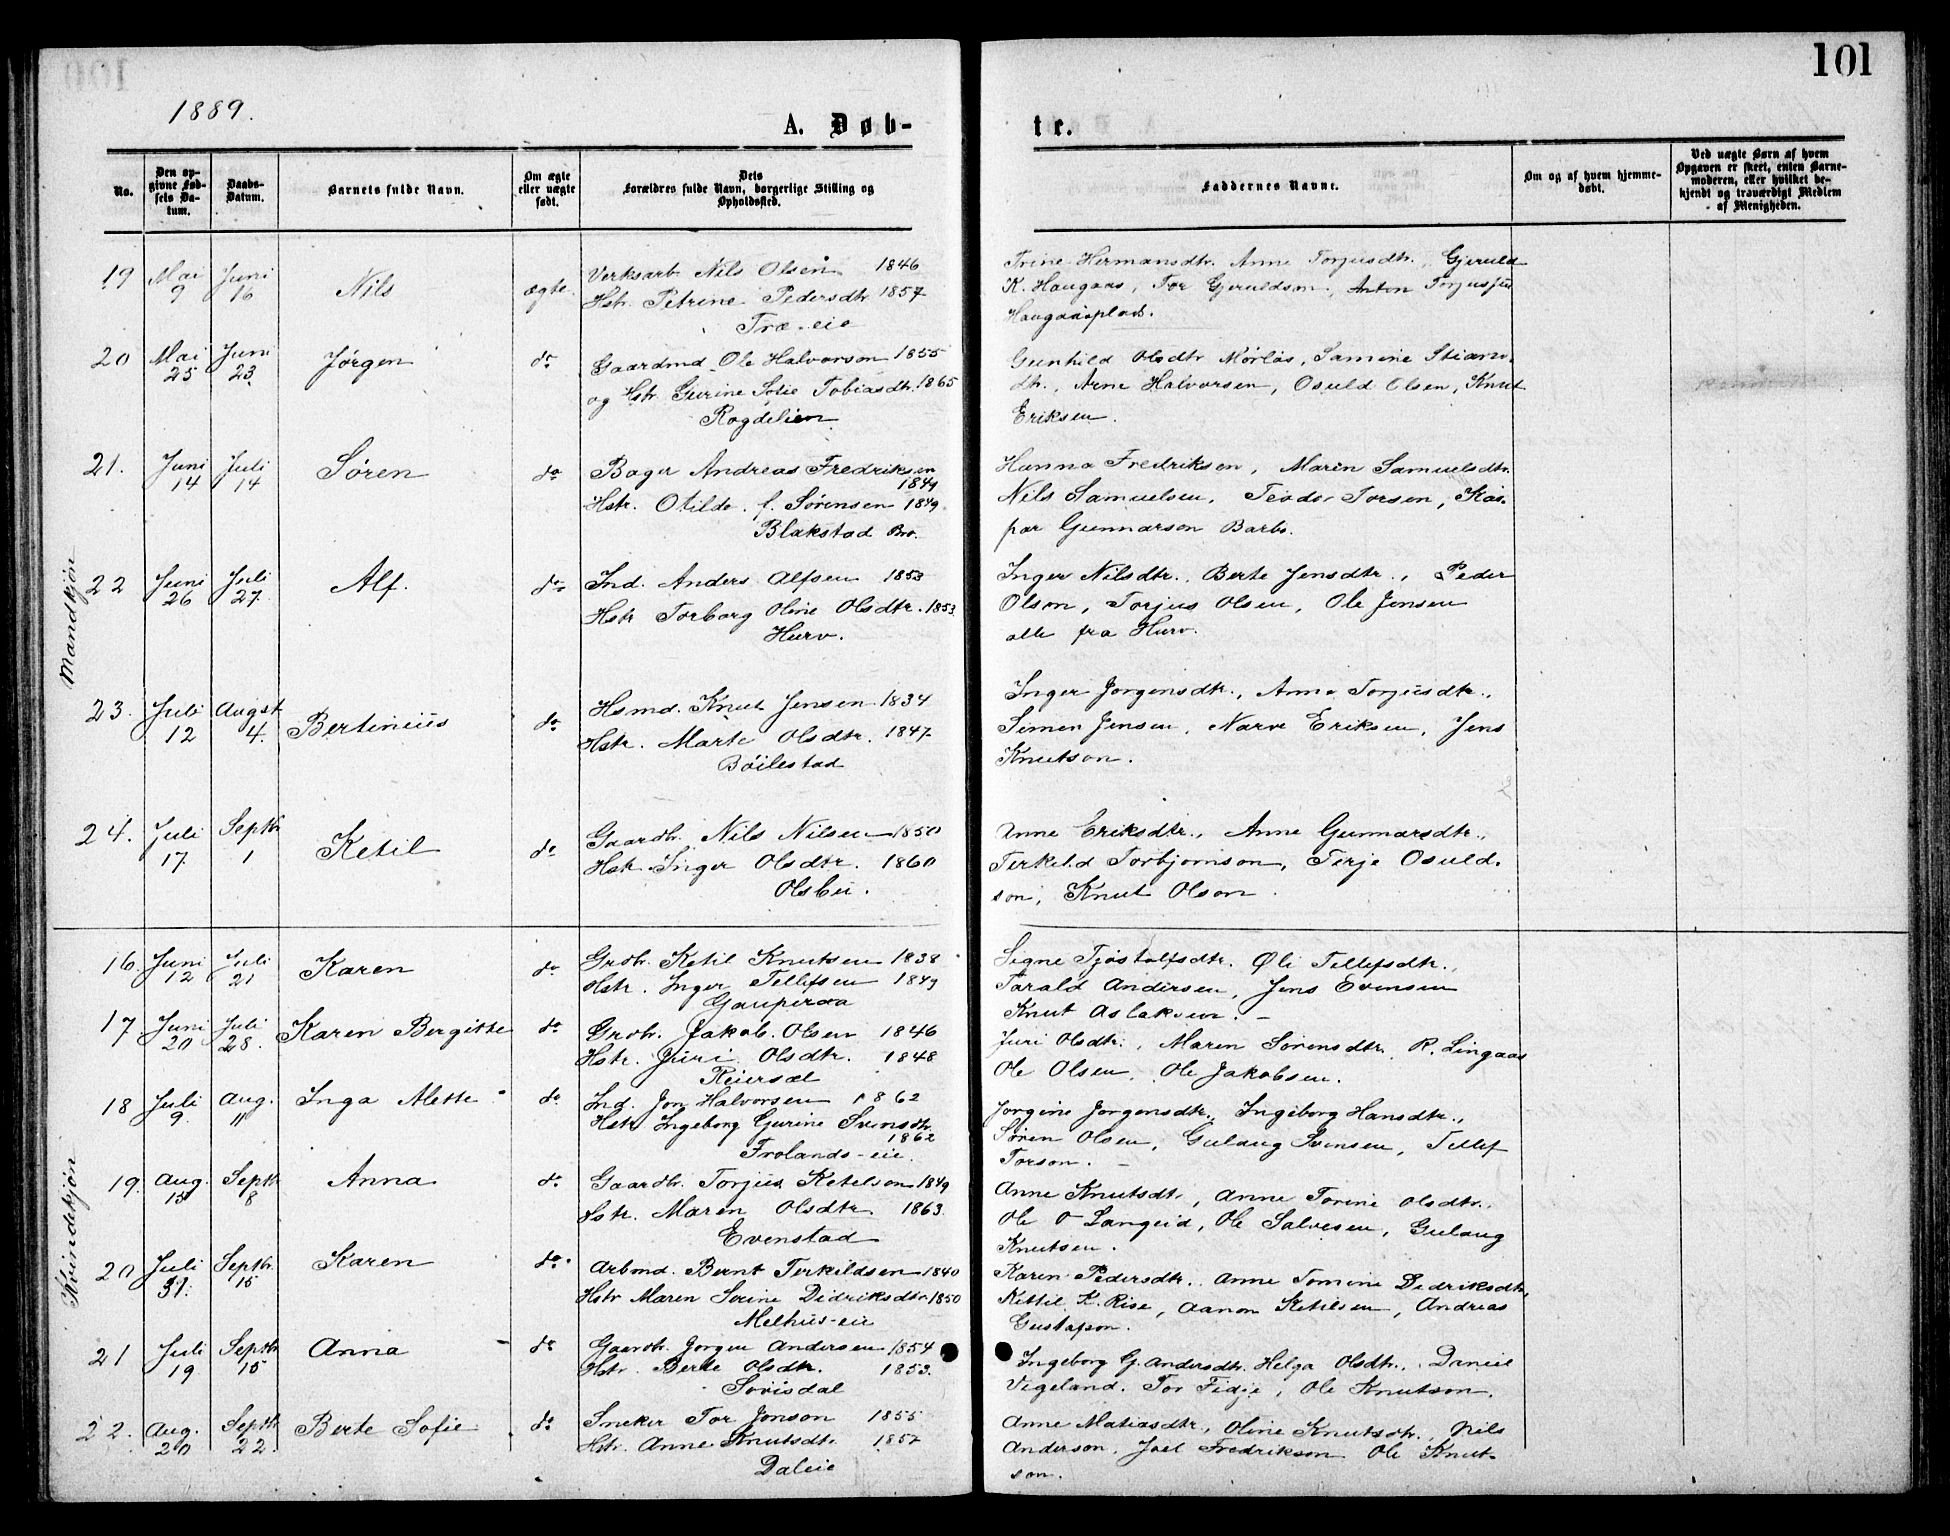 101
1889.
A. Døb-
te.
No.
Den op-
givne Fød-
sels Da-
tum.
Daabs-
Datum.
Barnets fulde Navn.
Om ægte
eller uægte
født.
Dets
Forældres fulde Navn, borgerlige Stilling og
Opholdssted.
Faddernes Navne.
Om og af hvem hjemme-
døbt.
Ved uægte Børn af hvem
Opgaven er skeet, enten Barne-
moderen, eller hvilket be-
kjendt og troværdigt Medlem
af Menigheden.
Mandkjøn
19 Mai 9 Juni 16 Nils ægte
Verksarb. Nils Olsen 1846
Hstr. Petrine Pedersdtr 1857
Træ-eie
Trine Hermansdtr. Anne Torjusdtr. Gjeruld
K. Haugaas, Tor Gjeruldsen, Anton Torjussen
Haugaasplads.
20 Mai 25 Juni 23 Jørgen do
Gaardmd. Ole Halvorson 1855
og Hstr Gurine Sofie Tobiasdtr. 1865
Rogdelien
Gunhild Olsdtr Mørlås, Samine
dtr., Arne Halvorsen, Osuld Olsen, Knut
Eriksen.
21. Juni 14 Juli 14 Søren do
Bager Andreas Fredriksen
1849
Hstr. Otilde f. Sørensen 1849.
Blakstad Bro.
Hanna Fredriksen, Maren Samuelsdtr.
Nils Samuelsen, Teodor Torsen, Kas-
par Gunnarson Barbo.
22 Juni 26 Juli 27. Alf. do
Ind. Anders Alfsen 1853
Hstr Torborg Oline Olsdtr. 1853.
Hurv.
Inger Nilsdtr., Berte Jensdtr., Peder
Olson, Torjus Olsen, Ole Jensen
alle fra Hurv.
23. Juli 12 Augst 4. Bertinius do
Hsmd. Knut Jensen 1834
Hstr. Marte Olsdtr. 1847.
Böilestad
Inger Jorgensdtr., Anne Torjusdtr.,
Simen Jensen, Narve Eriksen, Jens
Knutson.
24. Juli 17. Septbr 1 Ketil do
Gaardbr. Nils Nilsen 1850
Hstr Inger Olsdtr. 1860
Olsbu.
Anne Eriksdtr., Anne Gunnarsdtr.,
Terkild Torbjornson, Terje Osuld-
son, Knut Olson.
Kvindekjøn
16. Juni 12 Juli 21 Karen do
Grdbr. Ketil Knutsen 1838.
Hstr. Inger Tellefsen 1849
Gauperaa
Signe Tjøstolfsdtr. Øli Tellefsdtr.,
Tarald Andersen, Jens Evensen
Knut Aslaksen. -
17. Juni 20 Juli 28. Karen Bergitte do
Grdbr. Jakob Olsen 1846
Hstr. Juri Olsdtr. 1848
Reiersøl
Juri Olsdtr., Maren Sørensdtr. R. Lingaas
Ole Olsen, Ole Jakobsen.
18 Juli 9. Aug. 11 Inga Alette do.
Ind. Jon Halvorsen 1862
Hstr Ingeborg Gurine Svensdtr.
1862
Frolands-eie.
Jorgine Jorgensdtr., Ingeborg Hansdtr.,
Søren Olsen, Gulaug Svensen, Tellef
Torson. -
19. Aug. 15 Septb 8 Anna do.
Gaardbr. Torjus Ketelson 1849
Hstr. Maren Olsdtr 1863.
Evenstad
Anne Knutsdtr, Anne Torine Olsdtr.,
Ole O Langeid, Ole Salvesen, Gulaug
Knutsen.
20 Juli 31. Septbr. 15 Karen do.
Arbmd. Bernt Terkildsen 1840
Hstr Maren Serine Didriksdtr. 1850
Melhus-eie
Karen Pedersdtr. Anne Tomine Dedriksdtr,
Kittil K. Rise, Aanon Ketilsen, Andreas
Gustafson.
21 Juli 19 Septbr 15 Anna - do
Gaardbr. Jorgen Andersen 1854
Hstr. Berte Olsdtr. 1853.
Sørisdal
Ingeborg G. Andersdtr. Helga Olsdtr., Daniel
Vegeland. Tor Fidje, Ole Knutson.
22. Aug. 20 Septbr 22. Berte Sofie do
Sneker Tor Jonson 1855
Hstr. Anne Knutsdtr. 1857
Daleie
Anne Matiasdtr, Oline Knutsdtr., Nils
Anderson, Joel Fredrikson Ole Knut-
son.